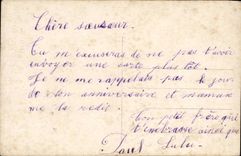 Chère sœusœur.
Tu m'excuseras de ne pas t'avoir
envoyer une carte plus tôt.
Je ne me rappelais pas le jour
de ton anniversaire et maman
me la redit.
Ton petit frère qui
t'embrasse ainsi que
Paul Lulu.